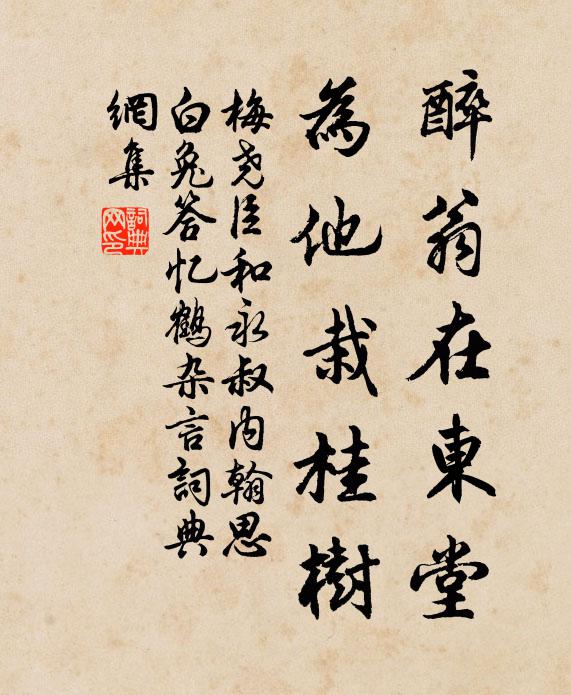 醉翁在東堂
為他栽桂樹
梅尧臣和永叔内翰思
白兔答忆鶴杂言詞典
網集
詞典网印